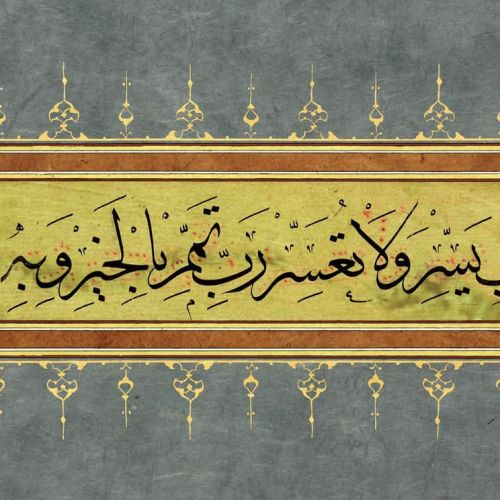 يَسِّرْ وَلَا تُعَسِّرْ رَبِّ تَمِّمْ بِالْخَيْرِ وَبِهِ